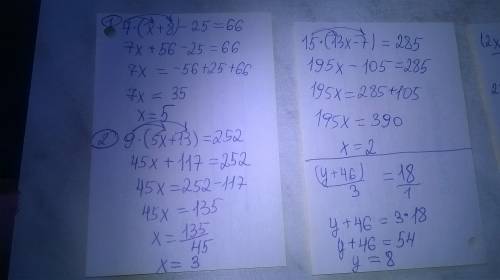 1) 7·(x+8)-25=66
7x+56-25=66
7x=-56+25+66
7x=35
x=5
2) 9·(5x+13)=252
45x+117=252
45x=252-117
45x=135
x=135/45
x=3
15·(13x-7)=285
195x-105=285
195x=285+105
195x=390
x=2
(y+46)/3=18/1
y+46=3·18
y+46=54
y=8